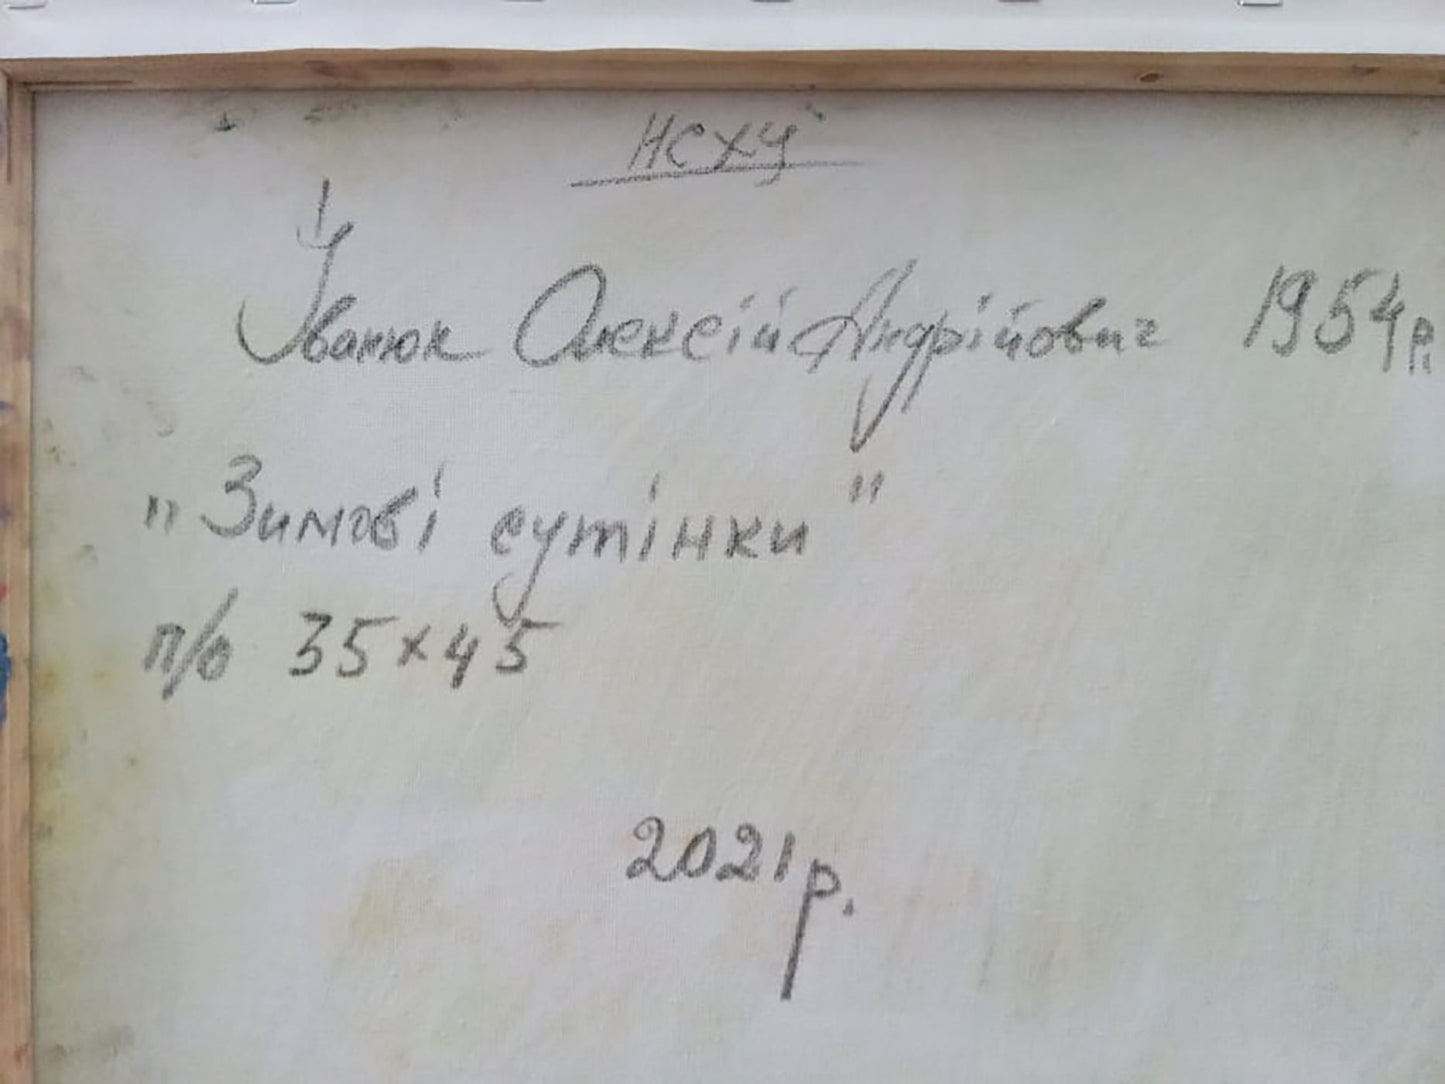 НСХУ
Іванюк Олексій Андрійович 1954р.
"Зимові сутінки"
п/о 35×45
2021р.